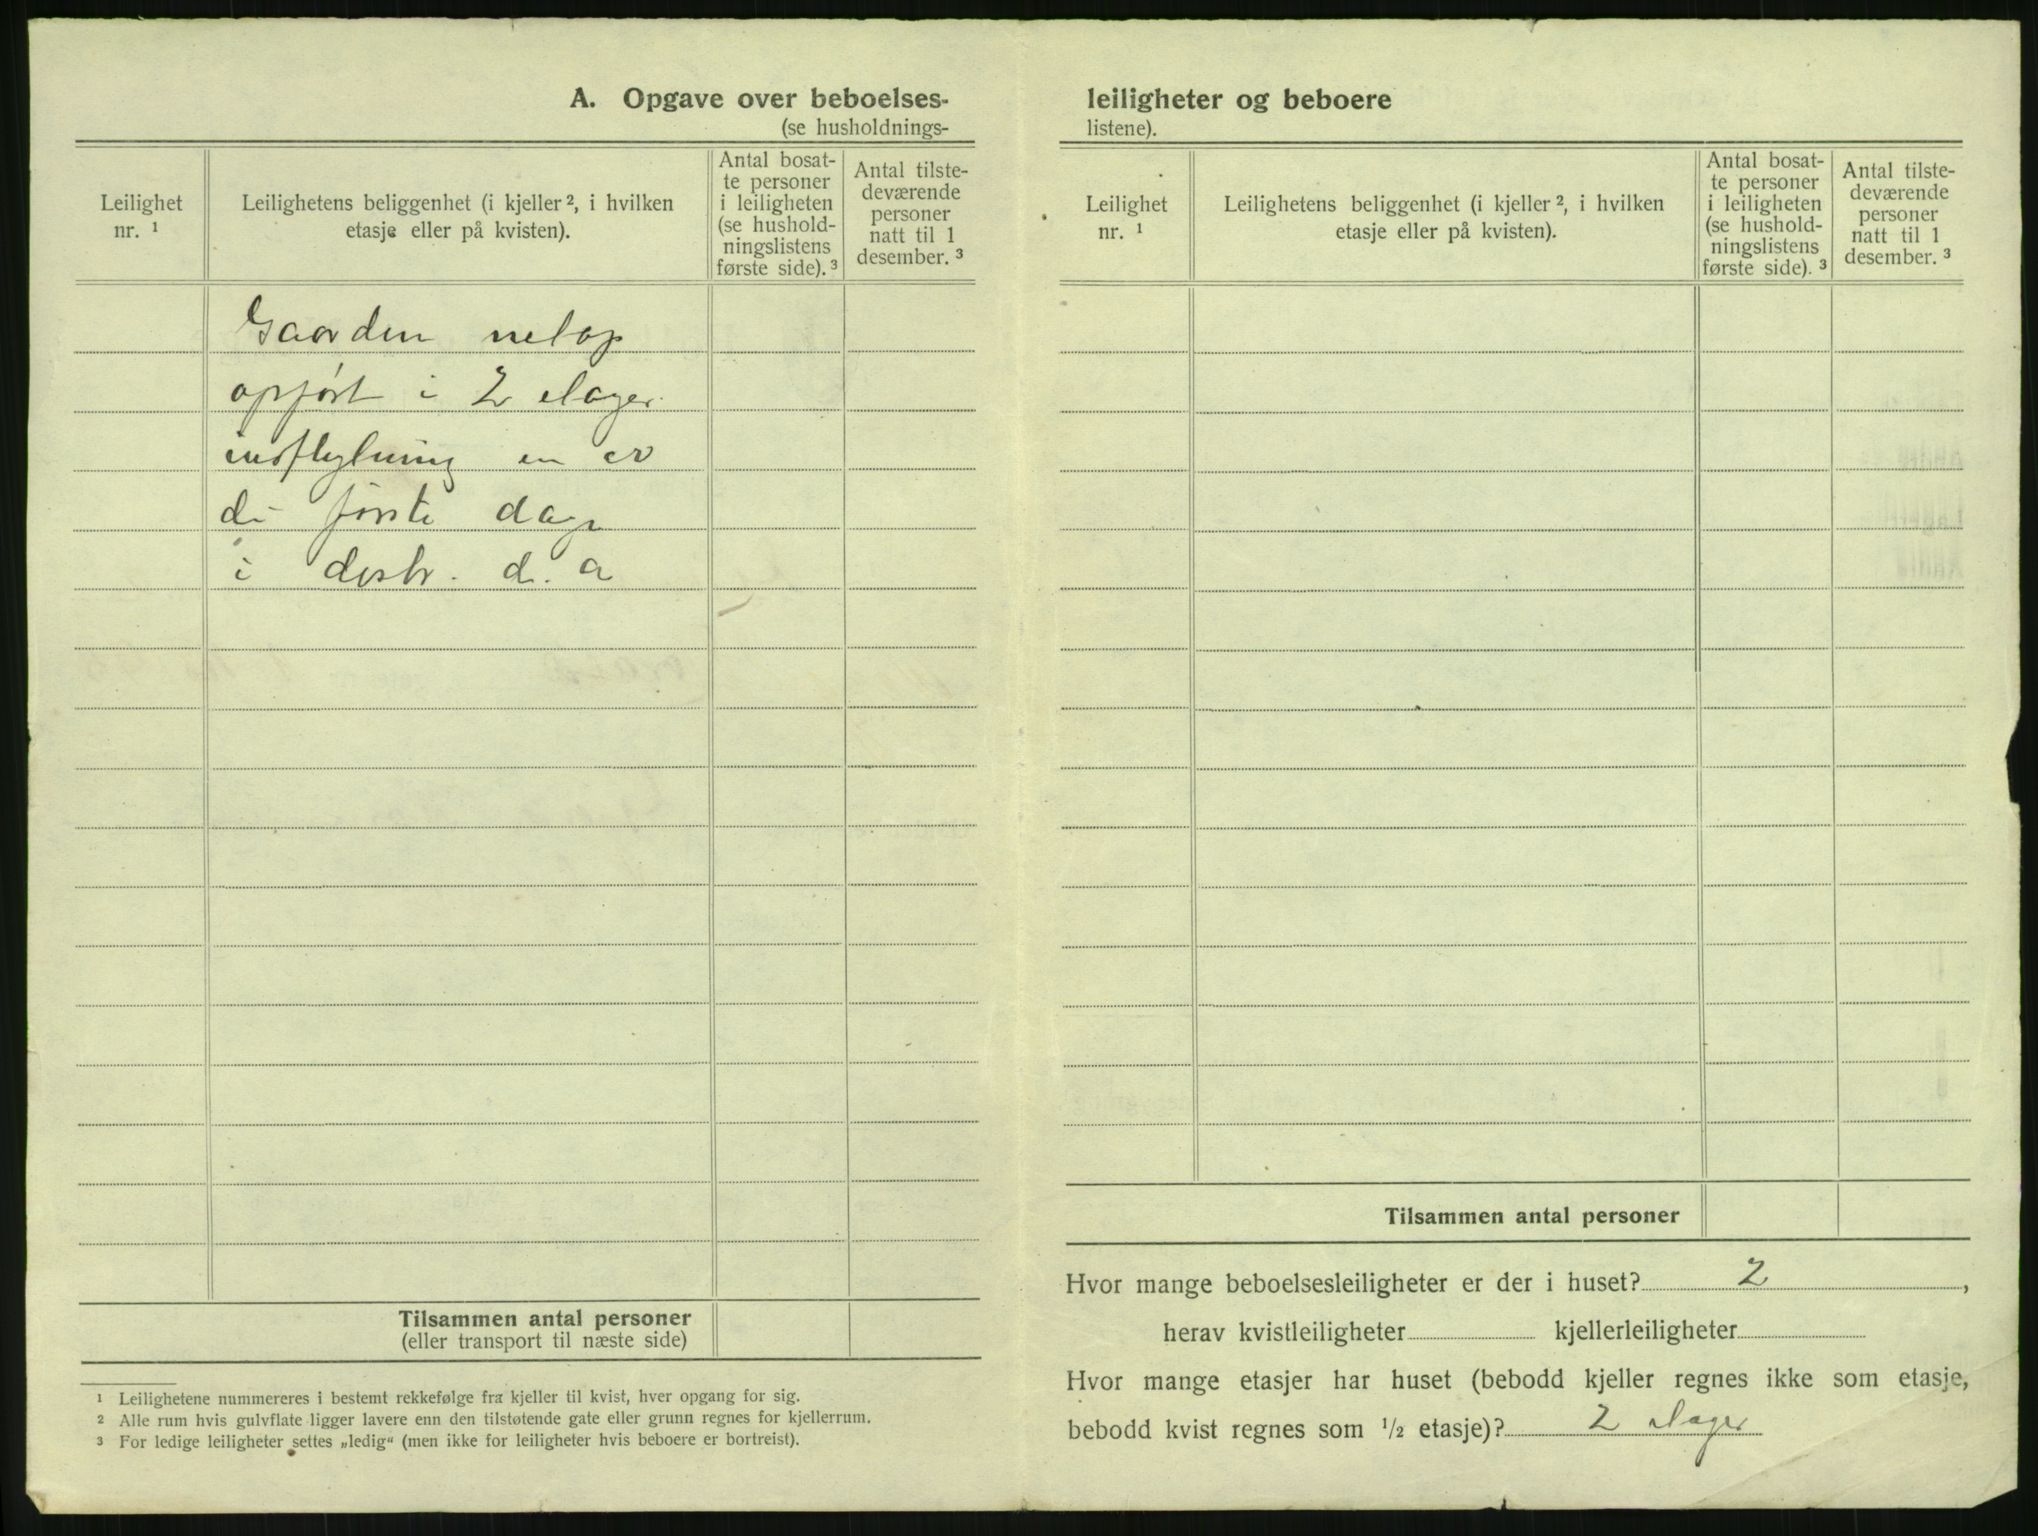 A. Opgave over beboelses-
(se husholdnings-
Leilighet
nr. ¹
Leilighetens beliggenhet (i kjeller ², i hvilken
etasje eller på kvisten).
Antal bosat-
te personer
i leiligheten
(se hushold-
ningslistens
første side). ³
Antal tilste-
deværende
personer
natt til 1
desember. ³
Gaarden netop
opført i 2 etager.
indflytning en er
di første dage
i desbr. d. a
Tilsammen antal personer
(eller transport til næste side)
¹ Leilighetene nummereres i bestemt rekkefølge fra kjeller til kvist, hver opgang for sig.
² Alle rum hvis gulvflate ligger lavere enn den tilstøtende gate eller grunn regnes for kjellerrum.
³ For ledige leiligheter settes „ledig“ (men ikke for leiligheter hvis beboere er bortreist).
leiligheter og beboere
listene).
Leilighet
nr. ¹
Leilighetens beliggenhet (i kjeller ², i hvilken
etasje eller på kvisten).
Antal bosat-
te personer
i leiligheten
(se hushold-
ningslistens
første side). ³
Antal tilste-
deværende
personer
natt til 1
desember. ³
Tilsammen antal personer
Hvor mange beboelsesleiligheter er der i huset? 2 ,
herav kvistleiligheter kjellerleiligheter
Hvor mange etasjer har huset (bebodd kjeller regnes ikke som etasje,
bebodd kvist regnes som ½ etasje)? 2 etager